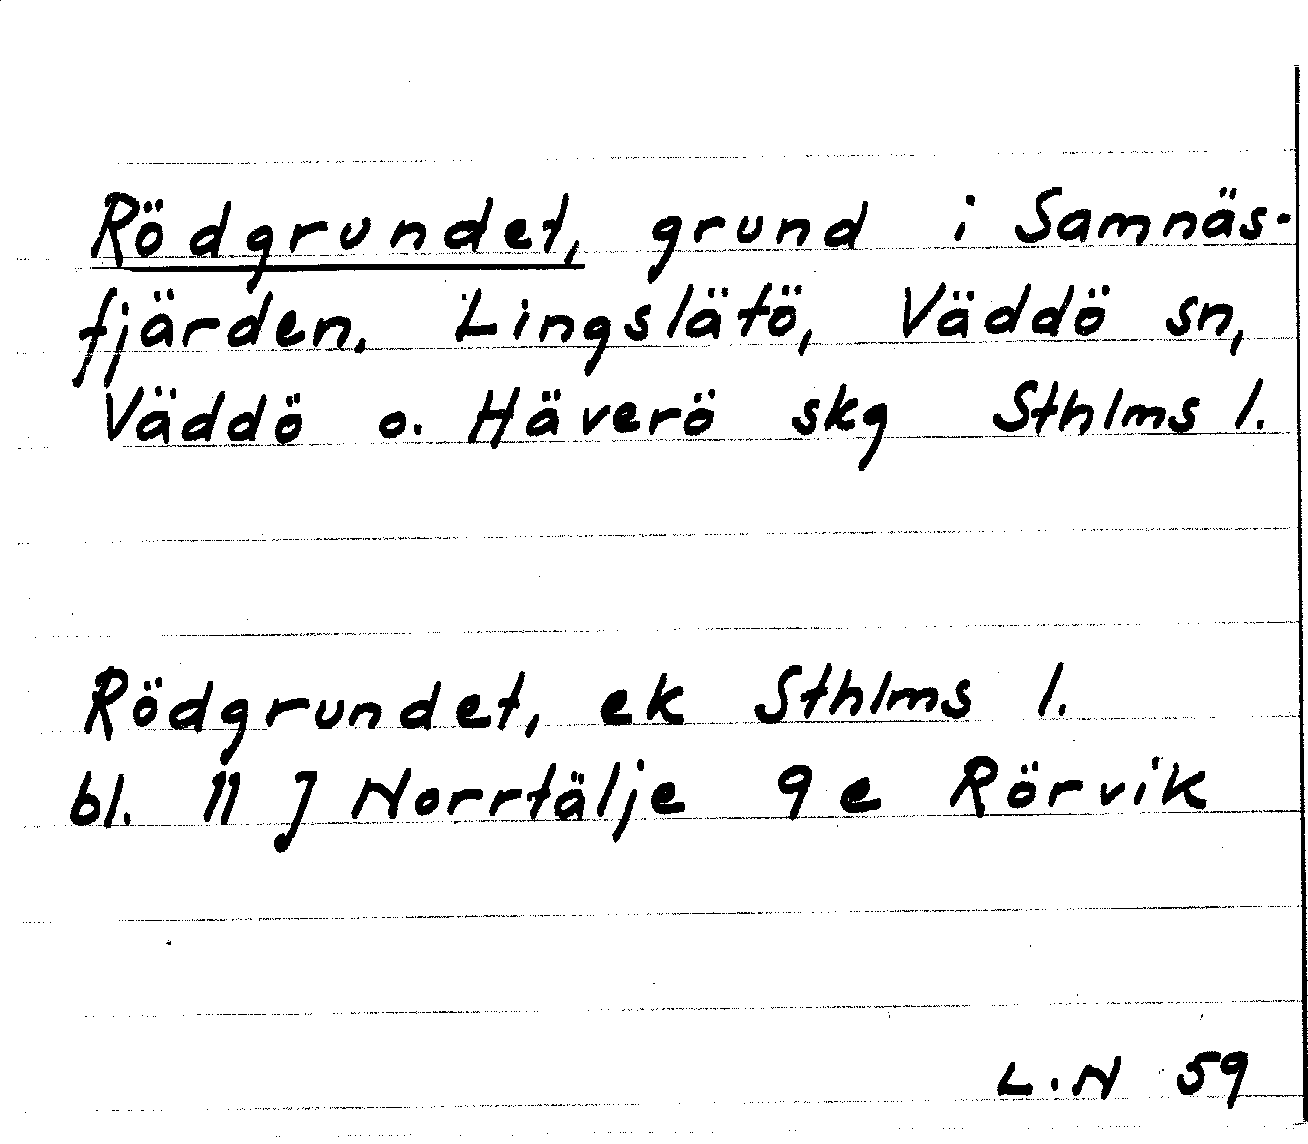 Rödgrundet, grund i Samnäs-
fjärden. Lingslätö, Väddö sn,
Väddö o. Häverö skg Sthlms l.
Rödgrundet, ek Sthlms l.
bl. 11 J Norrtälje 9 e Rörvik
L.N 59